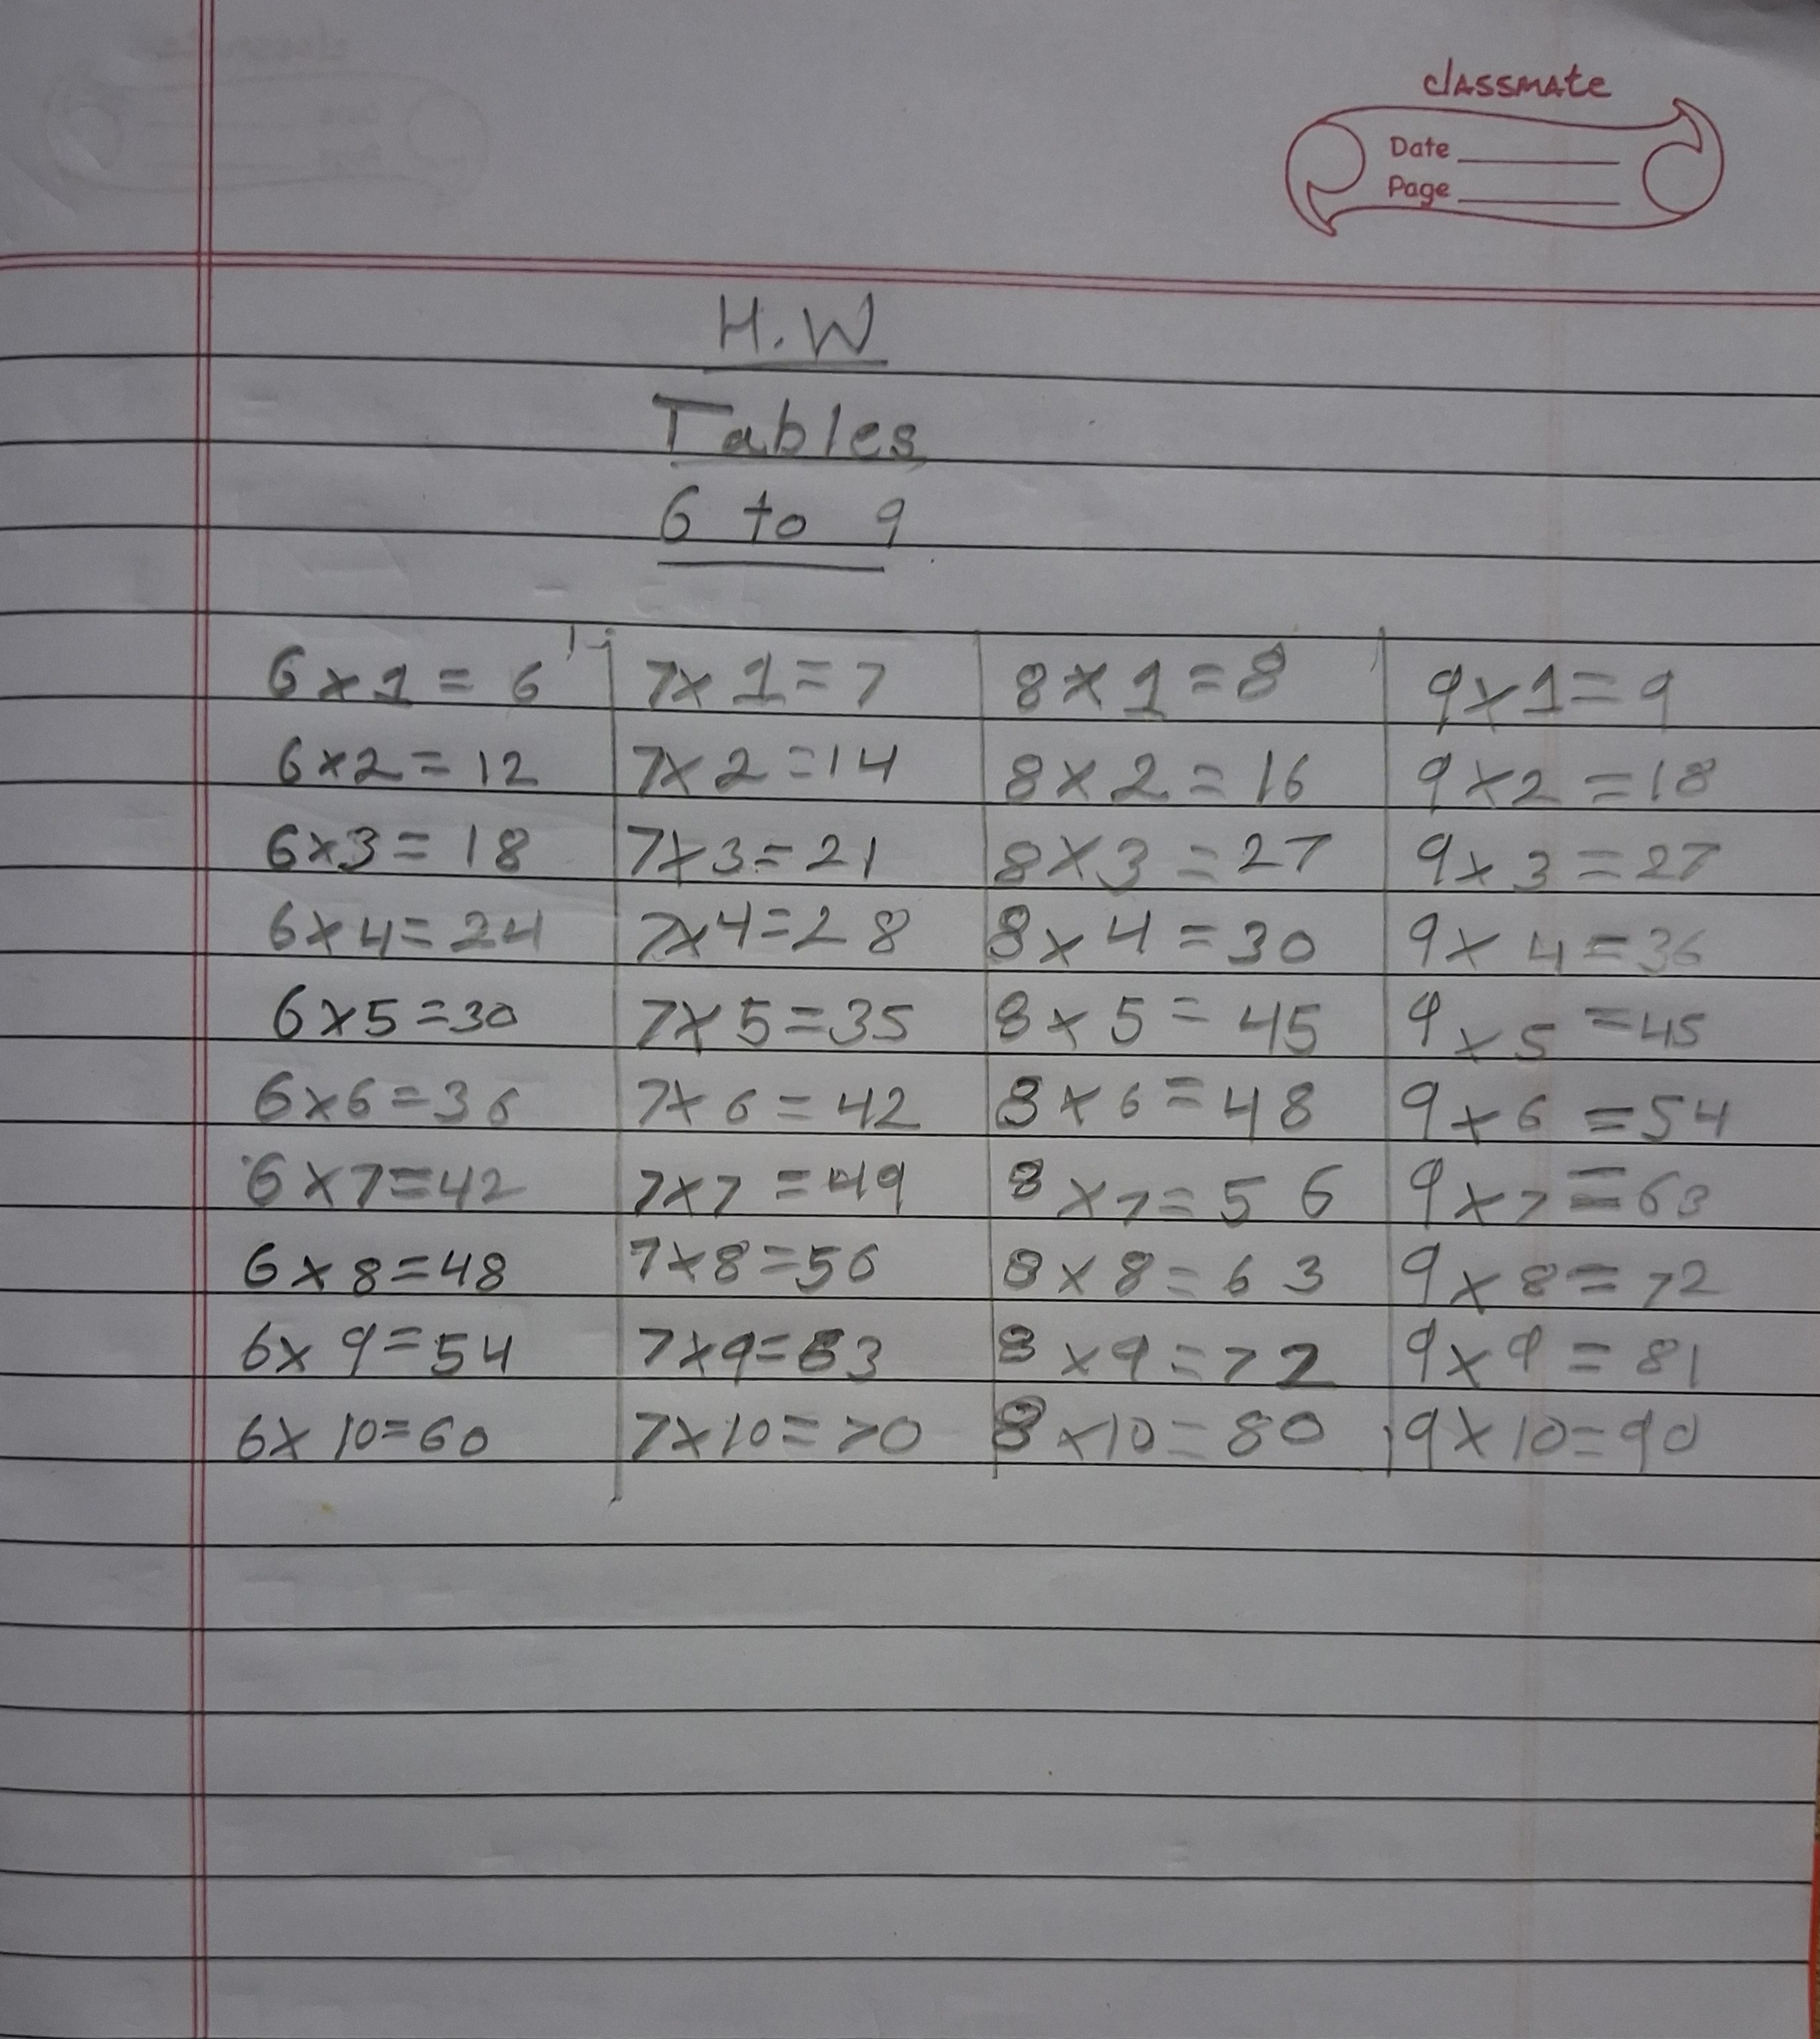 classmate
Date
Page
H.W
Tables
6 to 9
6 x 1 = 6 7 x 1 = 7 8 x 1 = 8 9 x 1 = 9
6 x 2 = 12 7 x 2 = 14 8 x 2 = 16 9 x 2 = 18
6 x 3 = 18 7 x 3 = 21 8 x 3 = 27 9 x 3 = 27
6 x 4 = 24 7 x 4 = 28 8 x 4 = 30 9 x 4 = 36
6 x 5 = 30 7 x 5 = 35 8 x 5 = 45 9 x 5 = 45
6 x 6 = 36 7 x 6 = 42 8 x 6 = 48 9 x 6 = 54
6 x 7 = 42 7 x 7 = 49 8 x 7 = 56 9 x 7 = 63
6 x 8 = 48 7 x 8 = 56 8 x 8 = 63 9 x 8 = 72
6 x 9 = 54 7 x 9 = 63 8 x 9 = 72 9 x 9 = 81
6 x 10 = 60 7 x 10 = 70 8 x 10 = 80 9 x 10 = 90